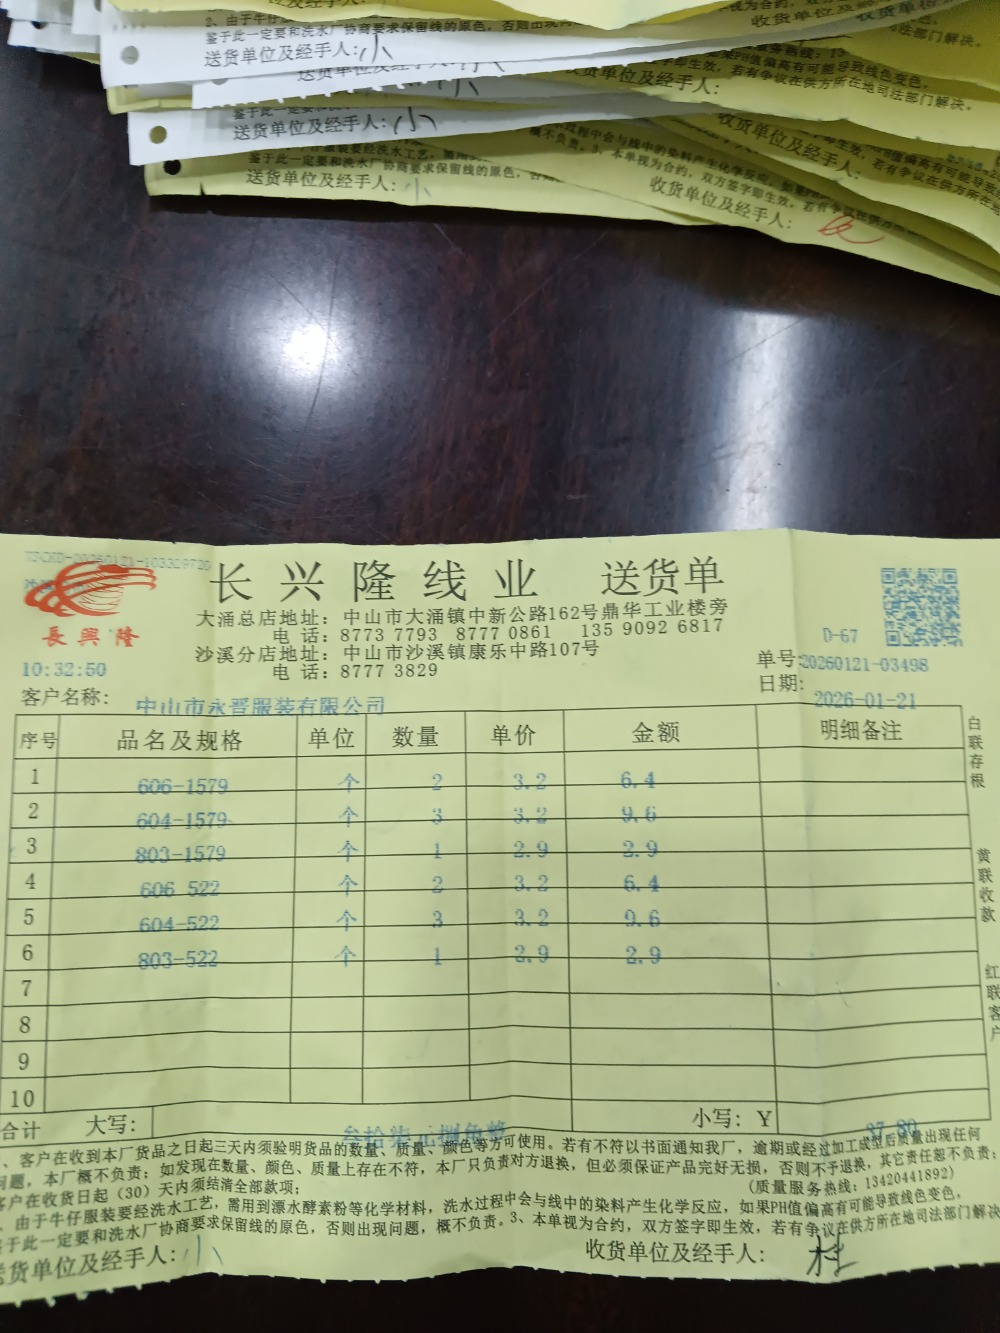 2、由于牛仔服
鉴于此一定要和洗水厂协商要求保留线的原色，否则出现
送货单位及经手人：小
送货单位及经手人：
收货单位及经手人：
送货单位及经手人：小
收货单位及经手人：
鉴于此一定要和洗水厂协商要求保留线的原色，
送货单位及经手人：小
收货单位及经手人：
長興隆
长兴隆线业 送货单
大涌总店地址：中山市大涌镇中新公路162号鼎华工业楼旁
电 话：8773 7793 8777 0861 135 9092 6817
沙溪分店地址：中山市沙溪镇康乐中路107号
电 话：8777 3829
D-67
10:32:50
单号:20260121-03498
日期: 2026-01-21
客户名称： 中山市永晋服装有限公司
序号 品名及规格 单位 数量 单价 金额 明细备注
1 606-1579 个 2 3.2 6.4
2 604-1579 个 3 3.2 9.6
3 803-1579 个 1 2.9 2.9
4 606 522 个 2 3.2 6.4
5 604-522 个 3 3.2 9.6
6 803-522 个 1 2.9 2.9
7
8
9
10
合计 大写： 叁拾柒元捌角整 小写：Y 37.80
白联存根
黄联收款
红联客户
、客户在收到本厂货品之日起三天内须验明货品的数量、质量、颜色等方可使用。若有不符以书面通知我厂，逾期或经过加工成型后质量出现任何
问题，本厂概不负责；如发现在数量、颜色、质量上存在不符，本厂只负责对方退换，但必须保证产品完好无损，否则不予退换，其它责任恕不负责；
客户在收货日起（30）天内须结清全部款项； (质量服务热线：13420441892)
、由于牛仔服装要经洗水工艺，需用到漂水酵素粉等化学材料，洗水过程中会与线中的染料产生化学反应，如果PH值偏高有可能导致线色变色，
鉴于此一定要和洗水厂协商要求保留线的原色，否则出现问题，概不负责。3、本单视为合约，双方签字即生效，若有争议在供方所在地司法部门解决
送货单位及经手人：小 收货单位及经手人：